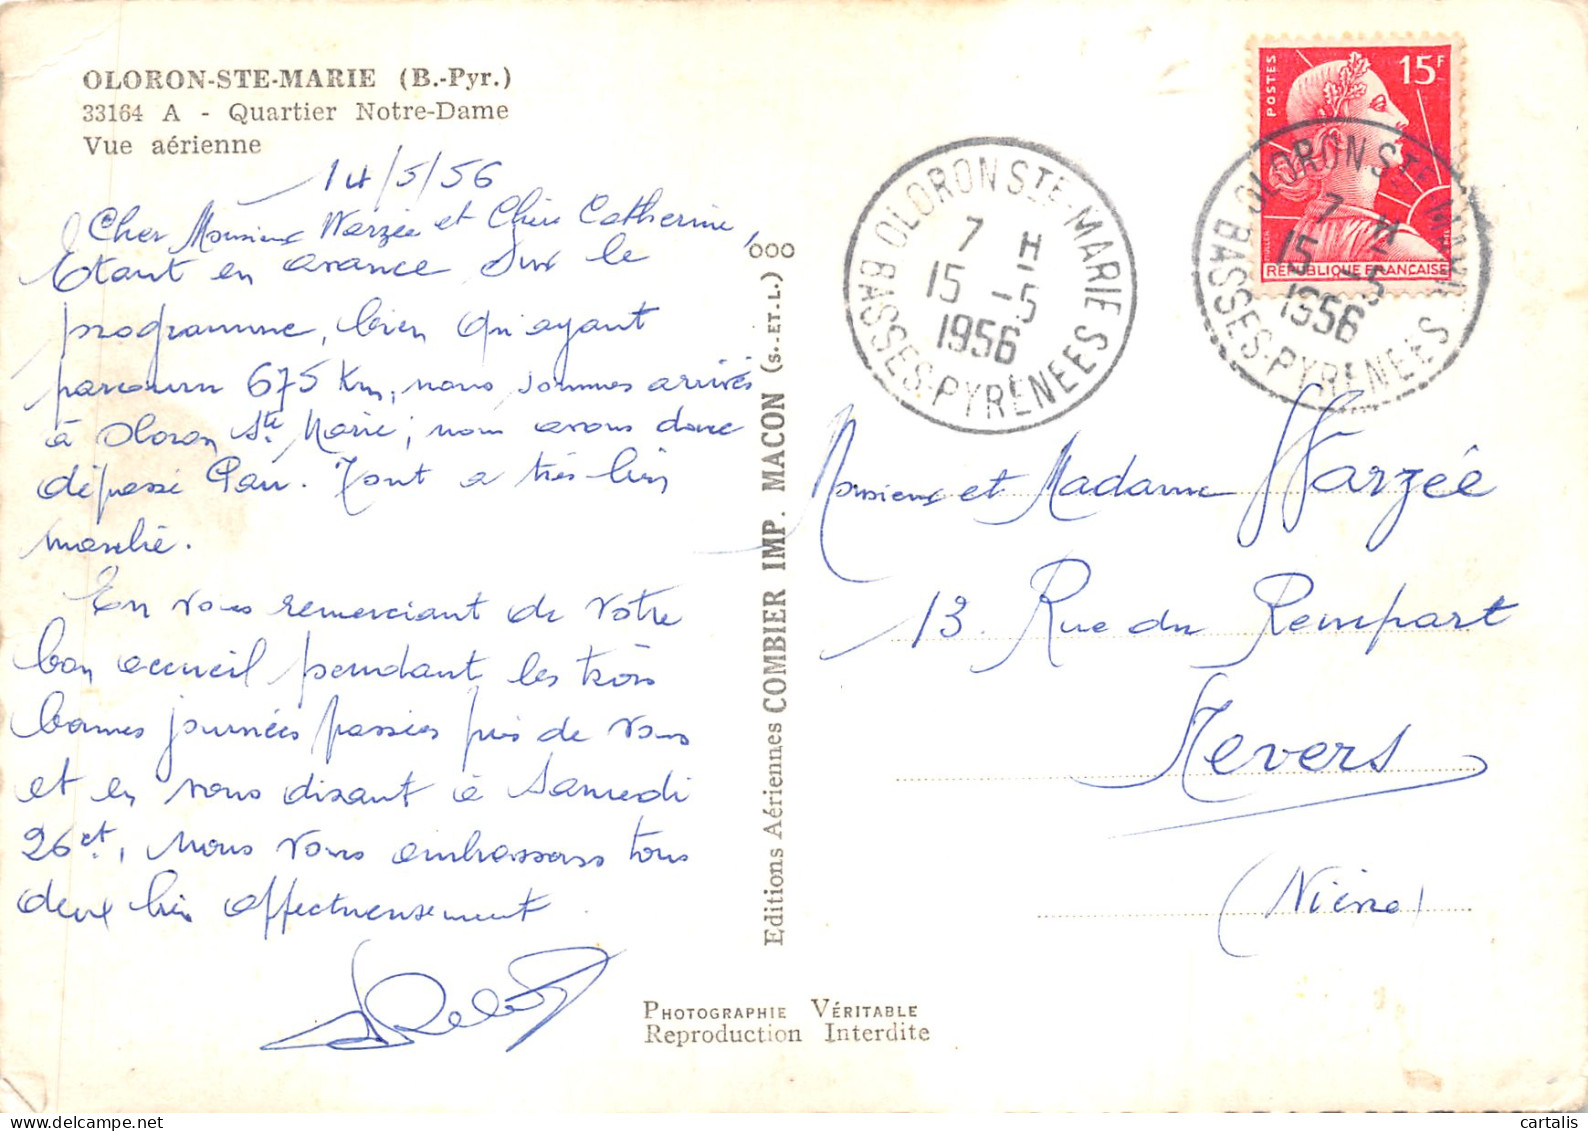 OLORON-STE-MARIE (B.-Pyr.)
33164 A - Quartier Notre-Dame
Vue aérienne
14/5/56
Cher Monsieur Warzée et Chère Catherine,
Etant en avance sur le
programme, bien qu'ayant
parcouru 675 Km, nous sommes arrivés
à Oloron Ste Marie; nous avons donc
dépassé Pau. Tout a très bien
marché.
En vous remerciant de votre
bon accueil pendant les trois
bonnes journées passées près de vous
et en vous disant à Samedi
26 ct, nous vous embrassons tous
deux bien affectueusement
Editions Aériennes COMBIER IMP. MACON (S.-ET-L.) OOO
PHOTOGRAPHIE VÉRITABLE
Reproduction Interdite
OLORON STE-MARIE
7 H
15 -5
1956
BASSES-PYRÉNÉES
POSTES
15F
RÉPUBLIQUE FRANÇAISE
OLORON STE-MARIE
7 H
15 -5
1956
BASSES-PYRENEES
Monsieur et Madame Warzée
13 Rue du Rempart
Nevers
(Nièvre)
cartalis